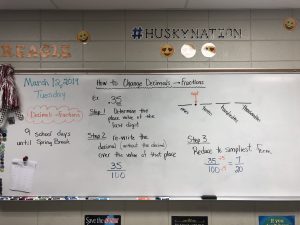 #HUSKYNATION
March 12, 2019
Tuesday
Decimals → Fractions
9 school days
until Spring Break
How to Change Decimals → Fractions
Ex: .35
Step 1 Determine the
place value of the
last digit
Ones
Tenths
Hundredths
Thousandths
Step 2 Re-write the
decimal (without the decimal)
over the value of that place
35
100
Step 3
Reduce to simplest form
35 ÷5 = 7
100 ÷5 20
Save the
If you